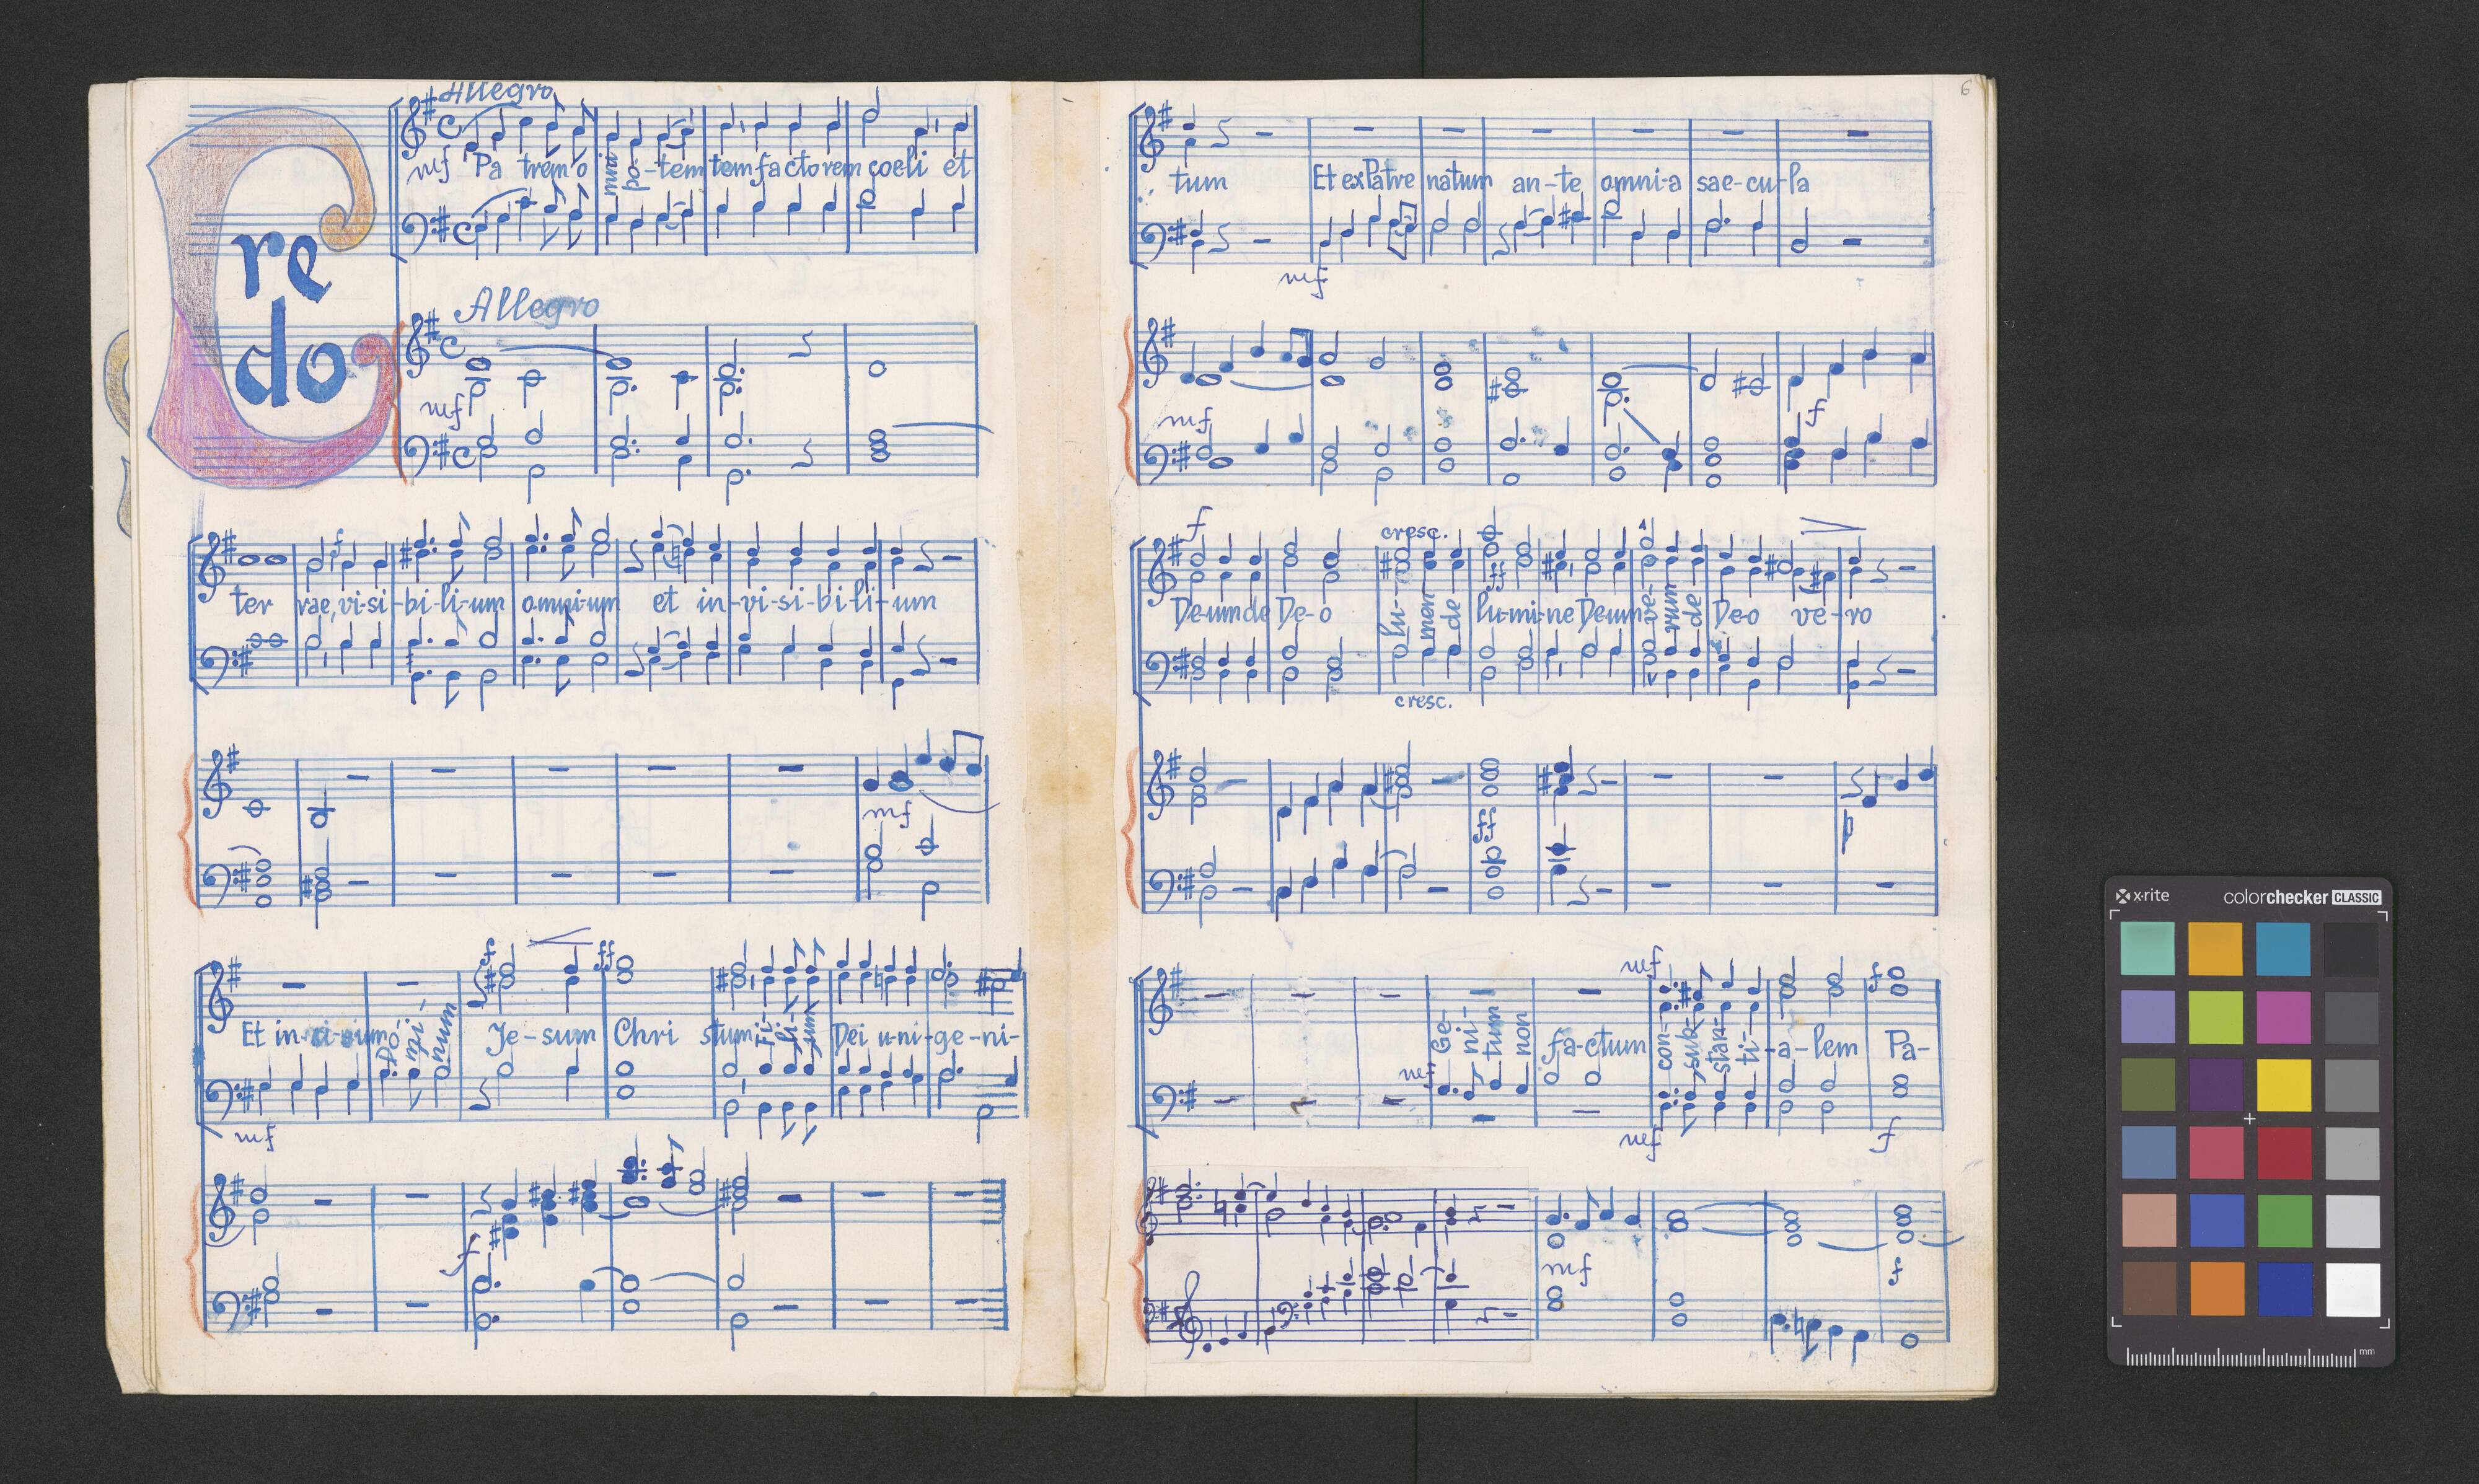 Credo
Allegro
mf Pa trem o mni po-tem tem factorem coeli et
Allegro
mf
ter rae, visi-bi-li-um omni-um et in-vi-si-bi-li-um
mf
f ff
Et in
Do-mi-num Je-sum Chri stum Fi-li-um Dei u-ni-ge-ni-
mf
f
6
tum Et ex Patre natum an-te omni-a sae-cu-la
mf
mf f
f cresc.
Deum de De-o lu-men de lu-mi-ne Deum ve-rum de De-o ve-ro
cresc.
p
mf f
Ge-ni-tum non factum con-sub-stan-ti-a-lem Pa-
mf
mf f
mf f
x·rite colorchecker CLASSIC
mm